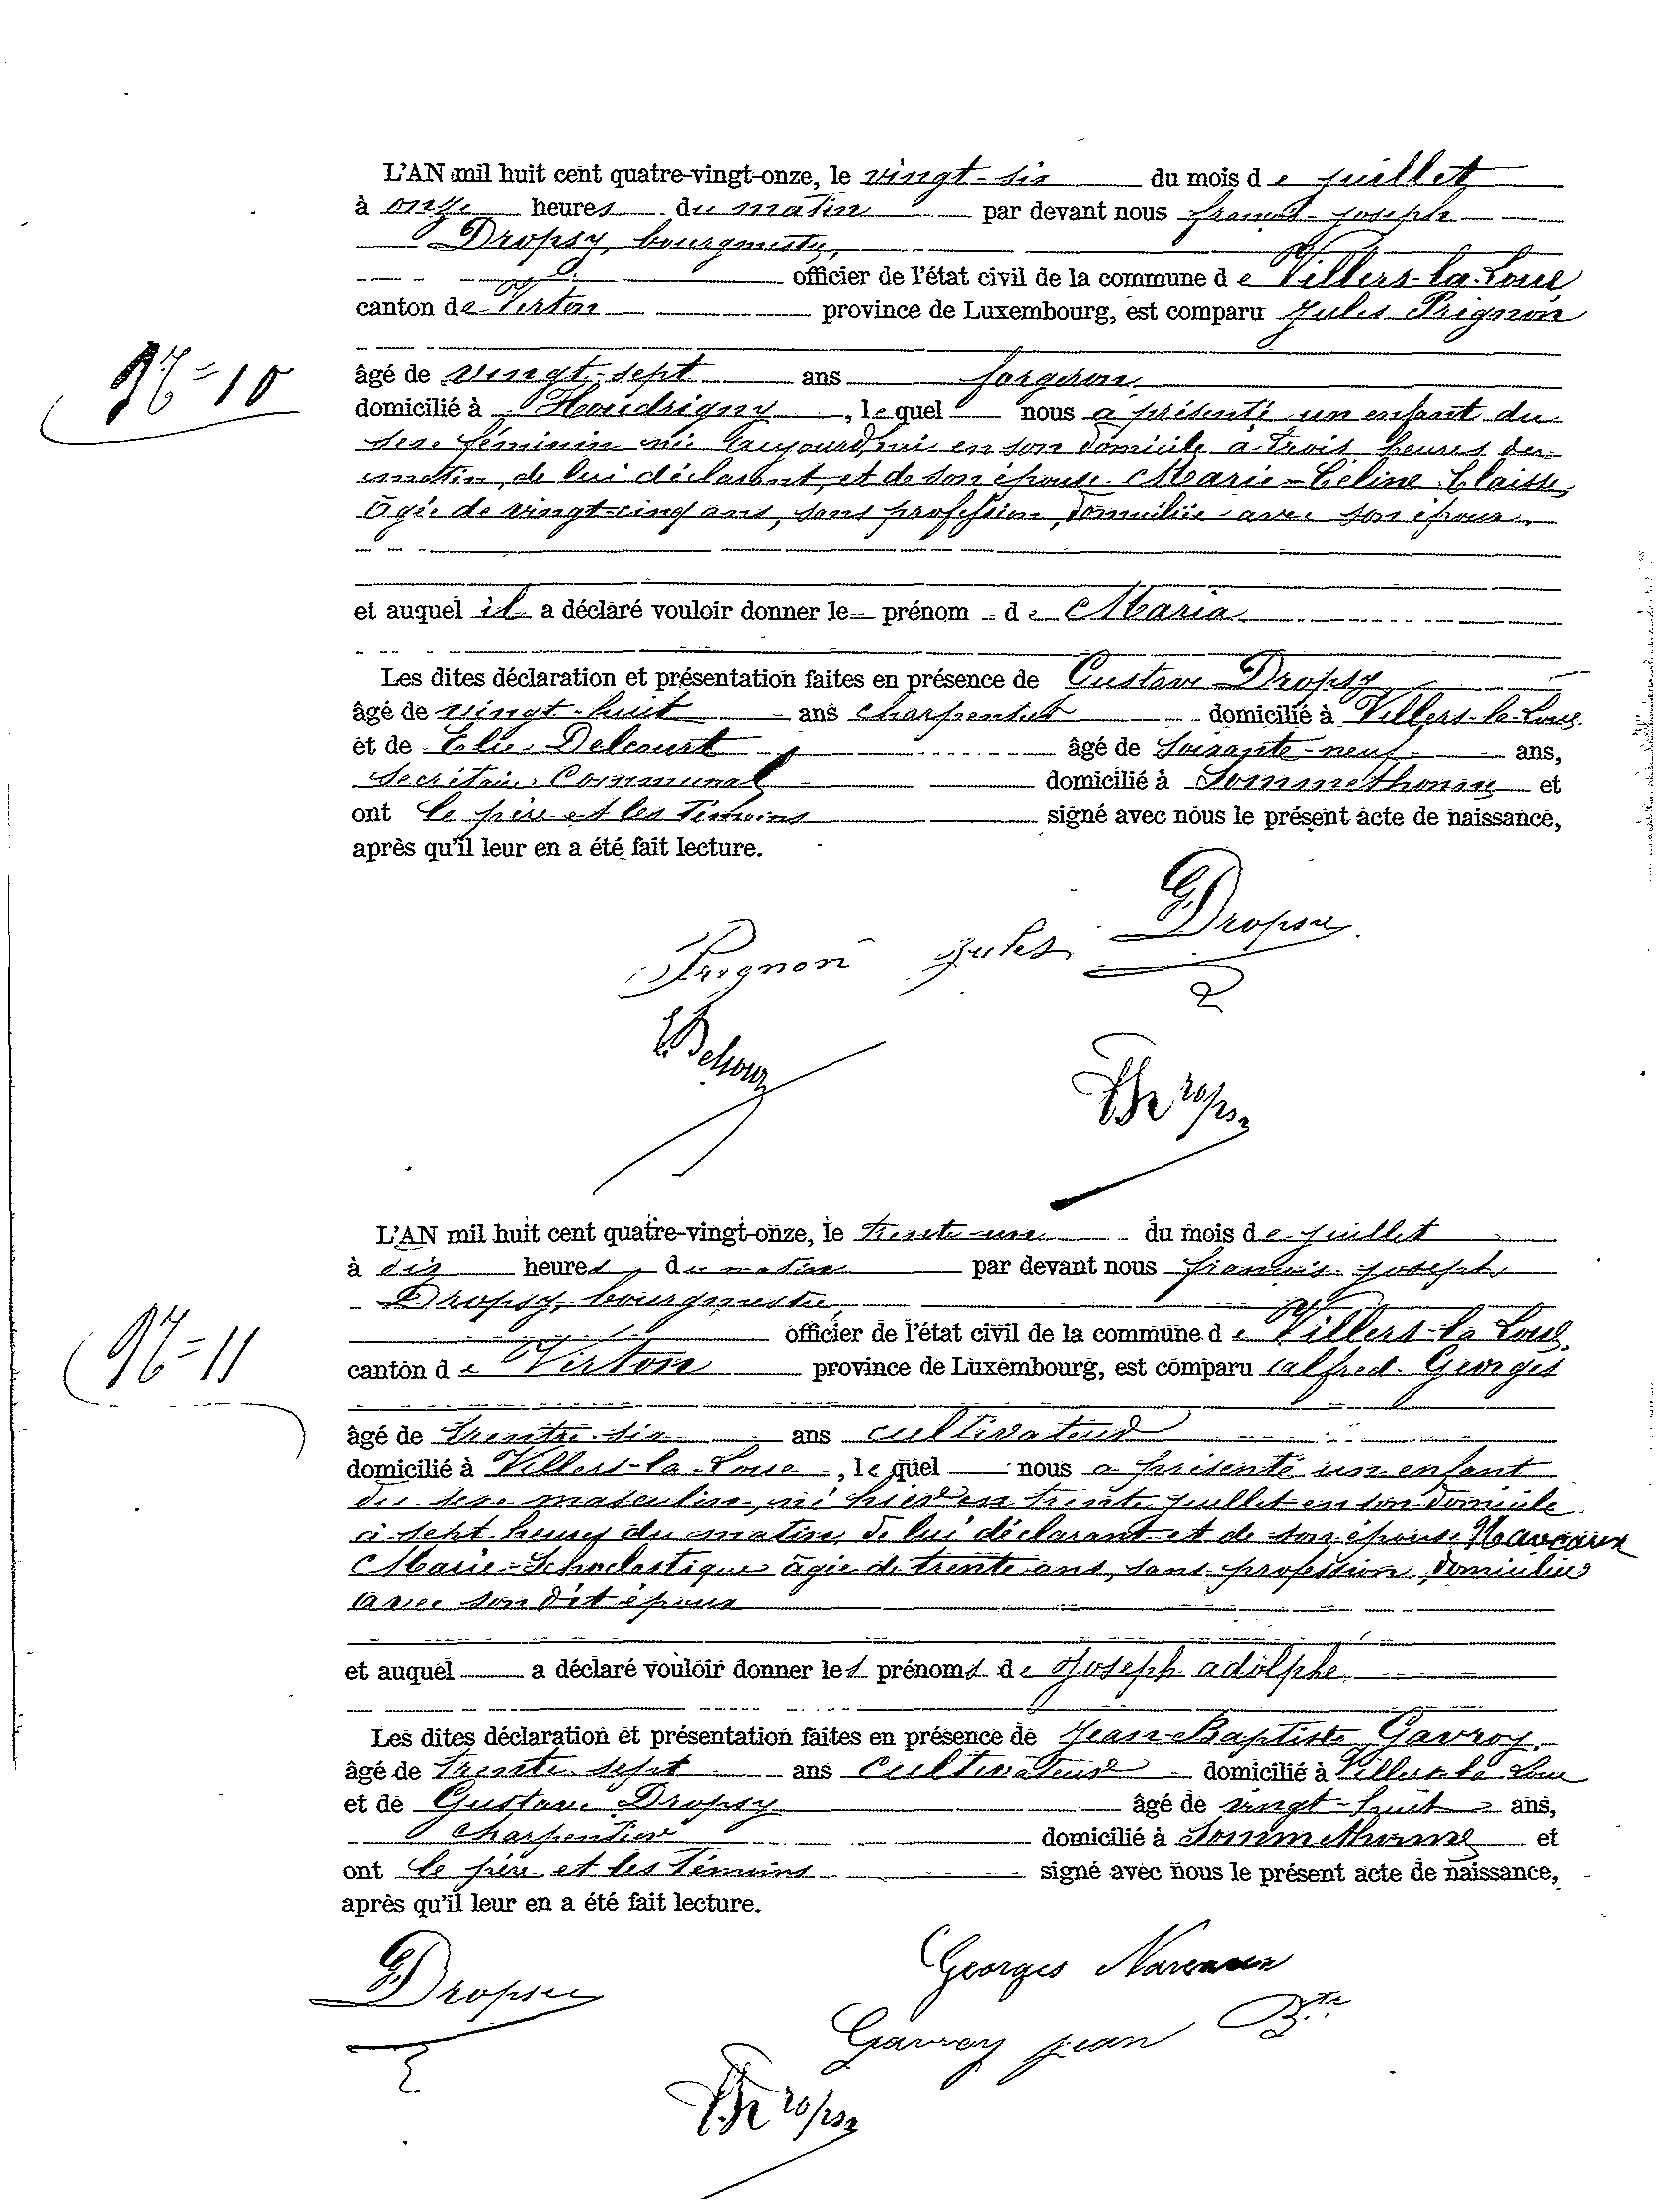 L'AN mil huit cent quatre-vingt-onze, le vingt-six du mois de juillet
à onze heures du matin par devant nous françois-joseph
Dropsy, bourgmestre,
officier de l'état civil de la commune de Villers-la-Loue
canton de Virton province de Luxembourg, est comparu Jules Prignon
N°=10
âgé de vingt-sept ans forgeron
domicilié à Houdrigny, lequel nous a présenté un enfant du
sexe féminin né aujourd'hui en son domicile à trois heures du
matin, de lui déclarant, et de son épouse Marie-Céline Claisse,
âgée de vingt-cinq ans, sans profession, domiciliée avec son époux
et auquel il a déclaré vouloir donner le prénom de Maria
Les dites déclaration et présentation faites en présence de Gustave Dropsy
âgé de vingt-huit ans charpentier domicilié à Villers-la-Loue
et de Elie Delcourt âgé de soixante-neuf ans,
Secrétaire Communal domicilié à Sommethonne et
ont le père et les témoins signé avec nous le présent acte de naissance,
après qu'il leur en a été fait lecture.
G Dropsy
Prignon jules
Dropsy
L'AN mil huit cent quatre-vingt-onze, le trente-un du mois de juillet
à dix heures, du matin par devant nous françois-joseph
Dropsy, bourgmestre,
officier de l'état civil de la commune de Villers-la-Loue
N°=11
canton de Virton province de Luxembourg, est comparu alfred Georges
âgé de trente-six ans cultivateur
domicilié à Villers-la-Loue, lequel nous a présenté un enfant
du sexe masculin, né hier en trente juillet en son domicile
à sept heures du matin, de lui déclarant et de son épouse Navcaux
Marie-Scholastique âgée de trente ans, sans profession, domiciliée
avec son dit époux
et auquel a déclaré vouloir donner les prénoms de Joseph adolphe
Les dites déclaration et présentation faites en présence de Jean-Baptiste Gavroy
âgé de trente-sept ans cultivateur domicilié à Villers-la-Loue
et de Gustave Dropsy âgé de vingt-huit ans,
charpentier domicilié à Sommethonne et
ont le père et les témoins signé avec nous le présent acte de naissance,
après qu'il leur en a été fait lecture.
G Dropsy
Georges
Gavroy jean Bte
Dropsy